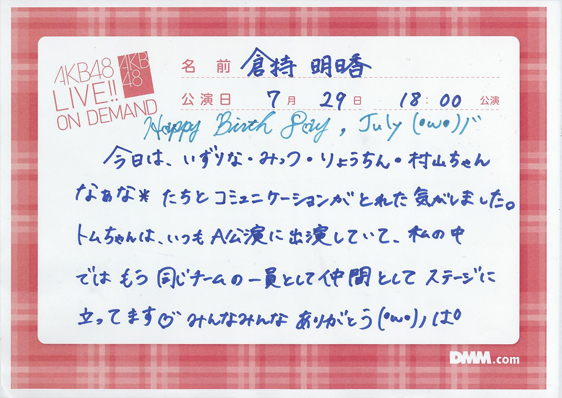 AKB48
LIVE!!
ON DEMAND
AKB
48
名前 倉持 明日香
公演日 7月 29日 18:00 公演
Happy Birth Day, July (•ω•)ノ"
今日は、いずりな・みっつ・りょうちん・村山ちゃん
なぁな* たちとコミュニケーションがとれた気がしました。
トムちゃんは、いつもA公演に出演していて、私の中
ではもう同じチームの一員として仲間としてステージに
立ってます♡ みんなみんなありがとう(•ω•)ノぱ°
DMM.com